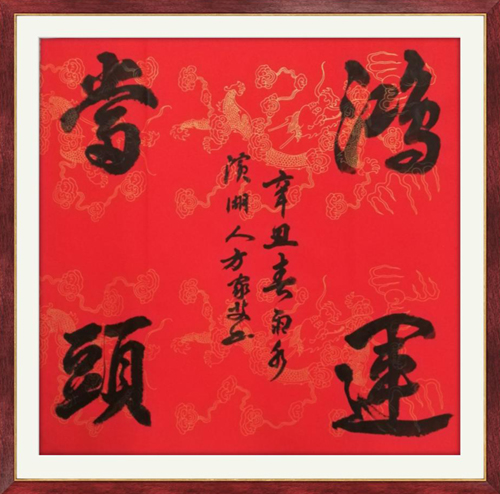 鴻運
當頭
辛丑春雨水
濱湖人方家书